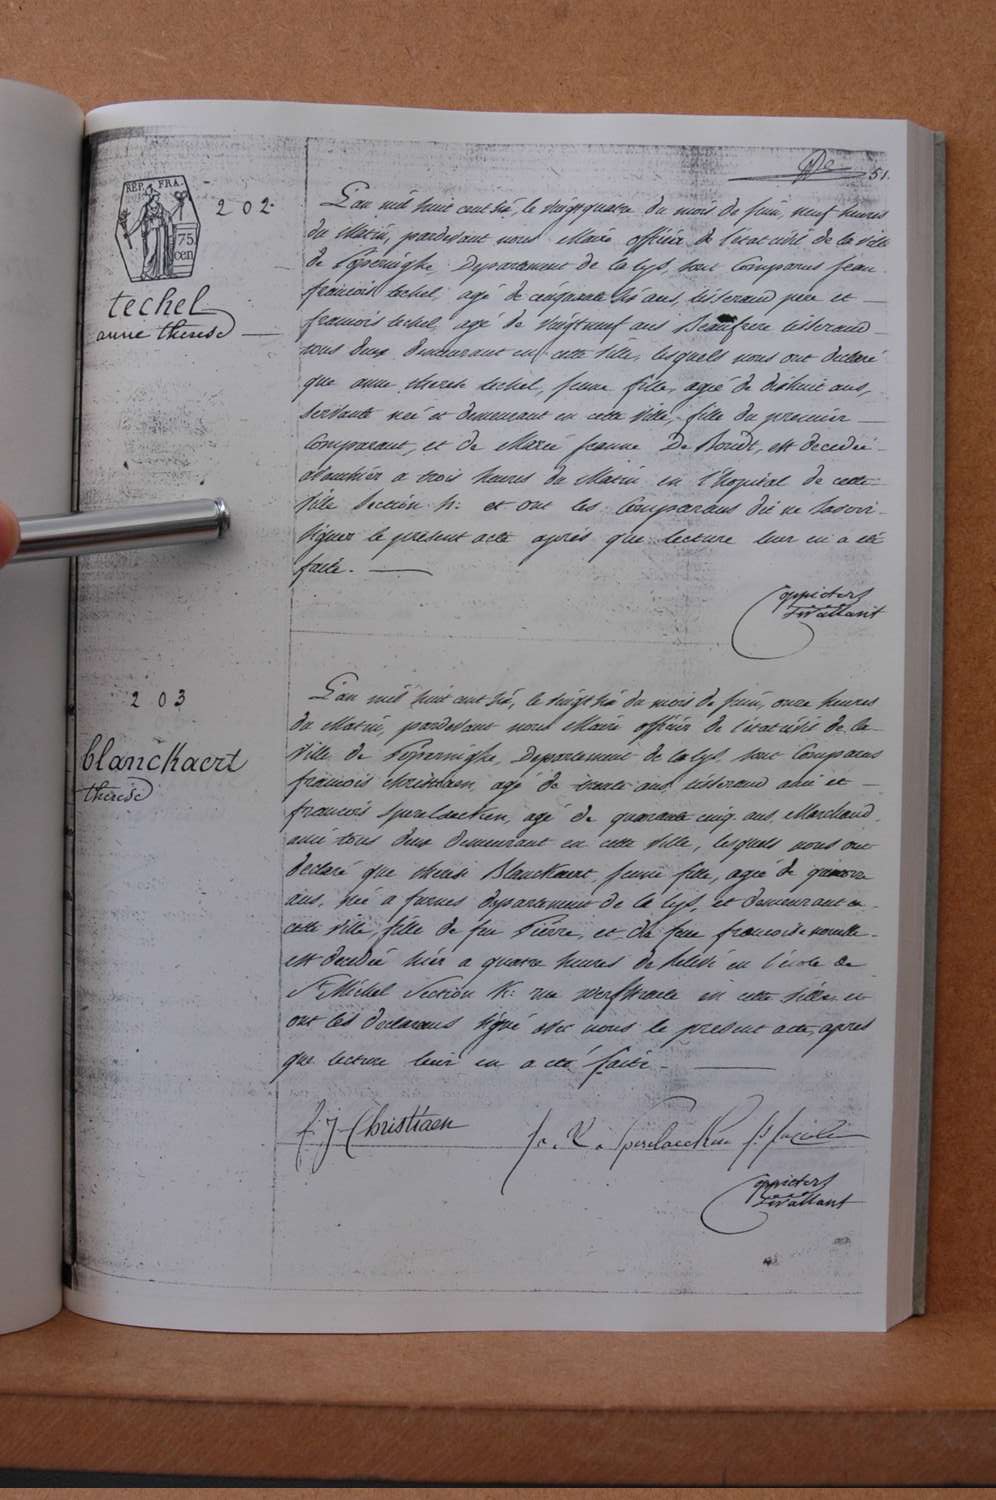 51.
REP. FRA.
75.
cen
202.
techel
anne therese
L'an mil huit cent six, le vingtquatre du mois de juin, neuf heures
du Matin, pardevant nous Maire officier de l'etat civil de la ville
de Poperinghe, Departement de la lys, sont Comparus jean
francois techel, agé de cinquante six ans, tisserand pere et
francois techel, agé de vingtneuf ans Beaufrere tisserand
tous deux demeurant en cette Ville, lesquels nous ont declaré
que anne therese techel, jeune fille, agée de dixhuit ans,
servante née et demeurant en cette Ville, fille du premier
Comparant, et de Marie jeanne De Boudt, est decedée
avanthier a trois heures du Matin en l'hopital de cette
Ville Section h: et ont les Comparans dit ne savoir
signer le present acte après que lecture leur en a été
faite.
203
blanckaert
therese
L'an mil huit cent six, le vingt six du mois de juin, onze heures
du Matin, pardevant nous Maire officier de l'etat civil de la
Ville de Poperinghe, Departement de la lys sont Comparus
francois Christiaen, agé de trente ans, tisserand ami et
francois Sperlaecken, agé de quarante cinq ans, Marchand
ami tous deux demeurant en cette Ville, lesquels nous ont
declaré que therese Blanckaert, jeune fille, agée de
ans, née a furnes departement de la lys, et demeurant en
cette Ville, fille de feu Pierre, et de feue francoise
est decedée hier a quatre heures de relevé en l'école de
St Michel Section K: rue en cette Ville et
ont les declarans signé avec nous le present acte, apres
que lecture leur en a été faite.
f. j. Christiaen
Sperlaecken